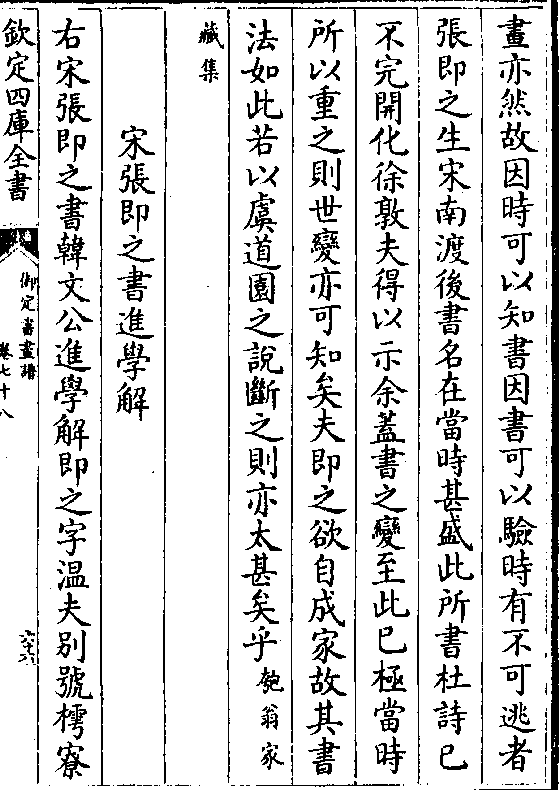 畫亦然故因時可以知書因書可以驗時有不可逃者
張即之生宋南渡後書名在當時甚盛此所書杜詩已
不完開化徐敦夫得以示余蓋書之變至此已極當時
所以重之則世變亦可知矣夫即之欲自成家故其書
法如此若以虞道園之說斷之則亦太甚矣乎匏翁家
藏集
宋張即之書進學解
右宋張即之書韓文公進學解即之字温夫別號樗寮
欽定四庫全書
御定書畫譜
卷七十八